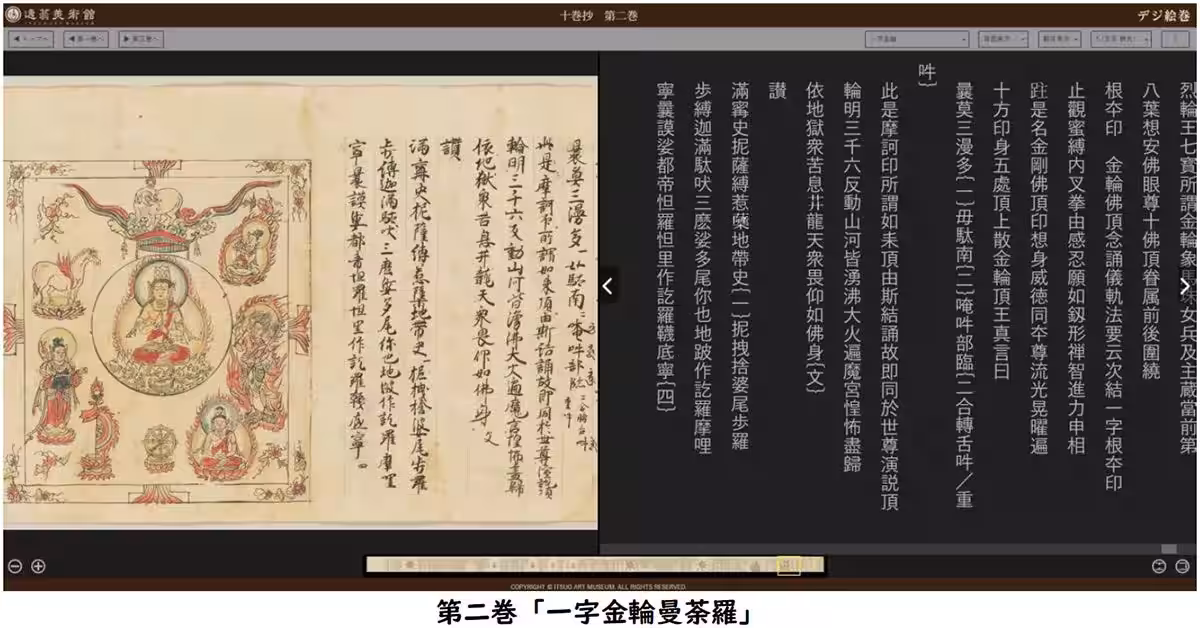 逸翁美術館
十巻抄 第二巻
デジ絵巻
◀ トップへ
◀ 第一巻へ
▶ 第三巻へ
烈輪王七寳所謂金輪象馬珠女兵及主蔵當前第
八葉想安佛眼尊十佛頂眷属前後圍繞
根夲印 金輪佛頂念誦儀軌法要云次結一字根夲印
止觀蜜縛内叉拳由感忍願如釼形禅智進力申相
跓是名金剛佛頂印想身威徳同夲尊流光晃曜遍
十方印身五處頂上散金輪頂王真言曰
曩莫三漫多〔一〕毋駄南〔二〕唵吽部臨〔二合轉舌吽／重
吽〕
此是摩訶印所謂如耒頂由斯結誦故即同於世尊演説頂
輪明三千六反動山河皆湧沸大火遍魔宮惶怖盡歸
依地獄衆苦息井龍天衆畏仰如佛身〔文〕
讃
滿寗史抳薩縛惹蘖地帶史〔一〕抳拽捨婆尾歩羅
歩縛迦滿駄吠三麽娑多尾你也地跛作訖羅摩哩
寧曩謨娑都帝怛羅怛里作訖羅韈底寧〔四〕
曩莫三漫多
此是摩訶印所謂如耒頂由斯結誦故即同於世尊演説頂
輪明三千六反動山河皆湧沸大火遍魔宮惶怖盡歸
依地獄衆苦息井龍天衆畏仰如佛身 文
讃
滿寗史抳薩縛惹蘖地帶史 抳拽捨婆尾歩羅
歩縛迦滿駄吠三麽娑多尾你也地跛作訖羅摩哩
寧曩謨娑都帝怛羅怛里作訖羅韈底寧 四
COPYRIGHT © ITSUO ART MUSEUM. ALL RIGHTS RESERVED.
第二巻「一字金輪曼荼羅」